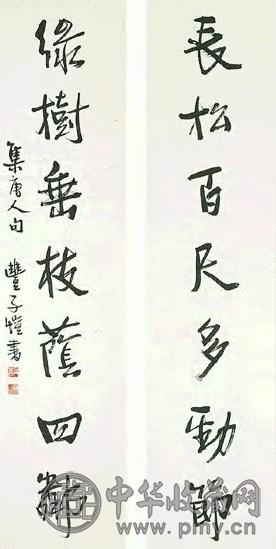 長松百尺多勁節
綠樹垂枝蔭四鄰
集唐人句 豐子愷書
中华收藏网
www.pmy.cn